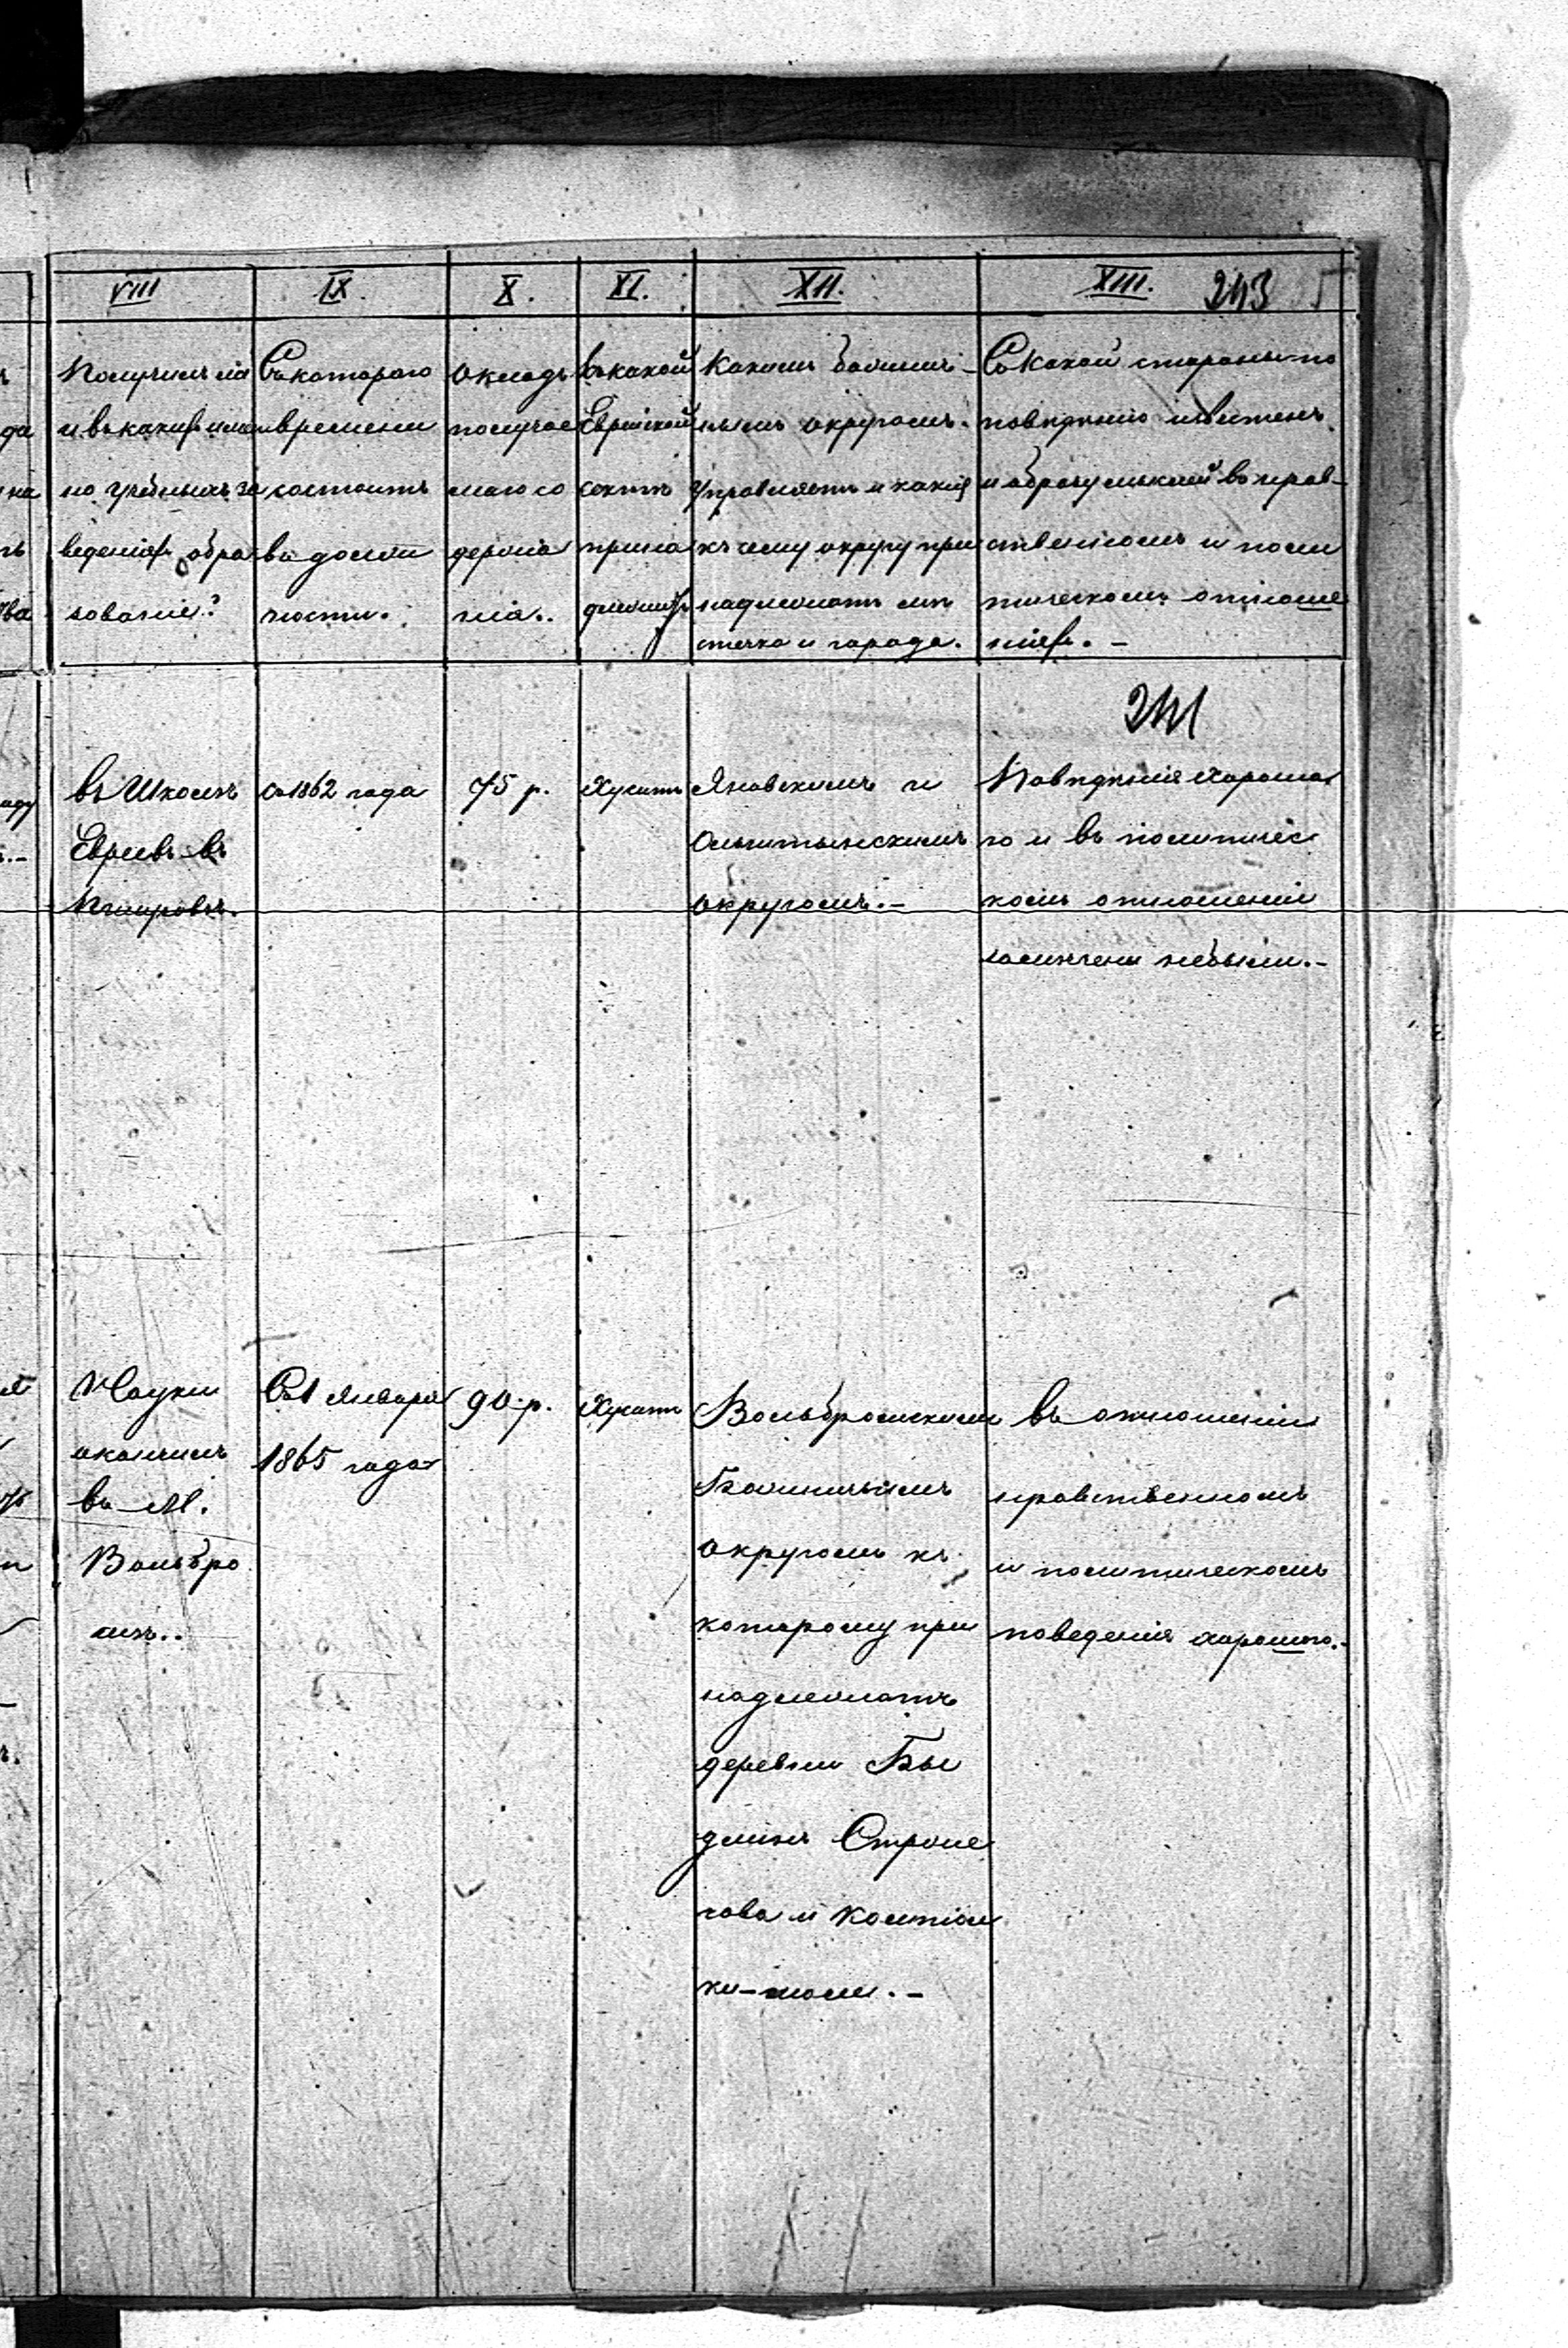 VIII
IX.
X.
XI.
XII.
XIII.
243
Получилъ ли
и въ какихъ имен
но учебныхъ за
веденіяхъ обра
зованіе?
Съ котораго
времени
состоитъ
въ долж
ности.
Окладъ
получае
маго со
держа
нія..
Къ какой
Еврейской
сектѣ
прина
длежитъ
Какимъ божнич-
нымъ округомъ
управляетъ и какія
къ сему округу при
надлежатъ мѣ
стечка и города.
Съ какой стороны по
поведенію извѣстенъ
и образу мыслей въ нрав-
ственномъ и поли
тическомъ отноше
ніяхъ. -
241
въ Школѣ
Евреевъ въ
съ 1862 года
75 р.
Хуситъ
Яновскимъ и
Ольштынскимъ
округомъ. -
Поведенія хороша
го и въ политичес
комъ отношеніи
замѣчены небыли. -
Науки
окончилъ
въ М.
Вольбро
мѣ..
Съ 1 Января
1865 года
90 р.
Хуситъ
Вольбромскимъ
Божничнымъ
округомъ къ
которому при
надлежатъ
деревни Бы
длинъ Строне
гова и
въ отношеніи
нравственномъ
и политическомъ
поведенія хорошаго. -